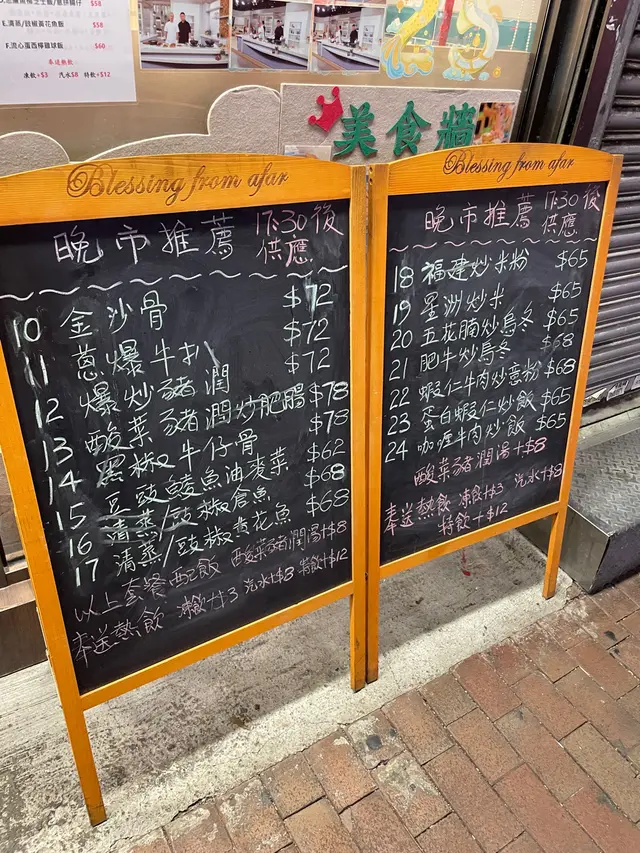 E.清蒸/豉椒黃花魚飯 $58
F.流心蛋西檸雞球飯 $60
奉送熱飲
凍飲+$3 汽水$8 特飲+$12
美食牆
Blessing from afar
晚市推薦 17:30後供應
10 金沙骨 $72
11 蔥爆牛扒 $72
12 爆炒豬潤 $72
13 酸菜豬潤炒肥腸 $78
14 黑椒牛仔骨 $78
15 豆豉鯪魚油麥菜 $62
16 清蒸/豉椒倉魚 $68
17 清蒸/豉椒黃花魚 $68
以上套餐配飯 酸菜豬潤湯+$8
奉送熱飲 凍飲+$3 汽水+$8 特飲+$12
Blessing from afar
晚市推薦 17:30後供應
18 福建炒米粉 $65
19 星洲炒米 $65
20 五花腩炒烏冬 $65
21 肥牛炒烏冬 $68
22 蝦仁牛肉炒意粉 $68
23 蛋白蝦仁炒飯 $65
24 咖喱牛肉炒飯 $65
酸菜豬潤湯+$8
奉送熱飲 凍飲+$3 汽水+$8
特飲+$12